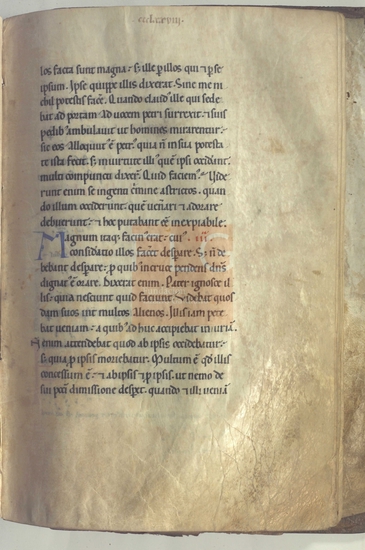 los facta sunt magna: s; ille p illos qui & p se
ipsum. Ipse quippe illis dixerat. Sine me ni
chil potestis facere. Quando claud' ille qui sede
bat ad portam ad vocem petri surrexit & suis
pedib; ambulavit ut homines mirarentur:
sic eos alloquit' e petr; quia n in sua potesta
te ista fecit. s; in virtute illi' que ipsi occiderunt.
multi compuncti dixert. Quid faciem'? Vide
runt enim se ingenti crimine astrictos. quan
do illum occiderunt: que venari & adorare
debuerunt: & hoc putabant ee inexpiabile.
Magnum itaq; facin' erat: cui'
consideratio illos faceret desperare. S; n de
bebant desperare: p quib; in cruce pendens dns
dignat' e orare. Dixerat enim. Pater ignosce il
lis: quia nesciunt quid faciunt. Videbat quos
dam suos int multos alienos. Illis iam pete
bat veniam: a quib; adhuc accipiebat iniuria.
N enim attendebat quod ab ipsis occidebatur:
s; quia p ipsis moriebatur. Multum e qd illis
concessum e: & ab ipsis & p ipsis. ut nemo de
sui peccati dimissione desperet. quando & illi venia